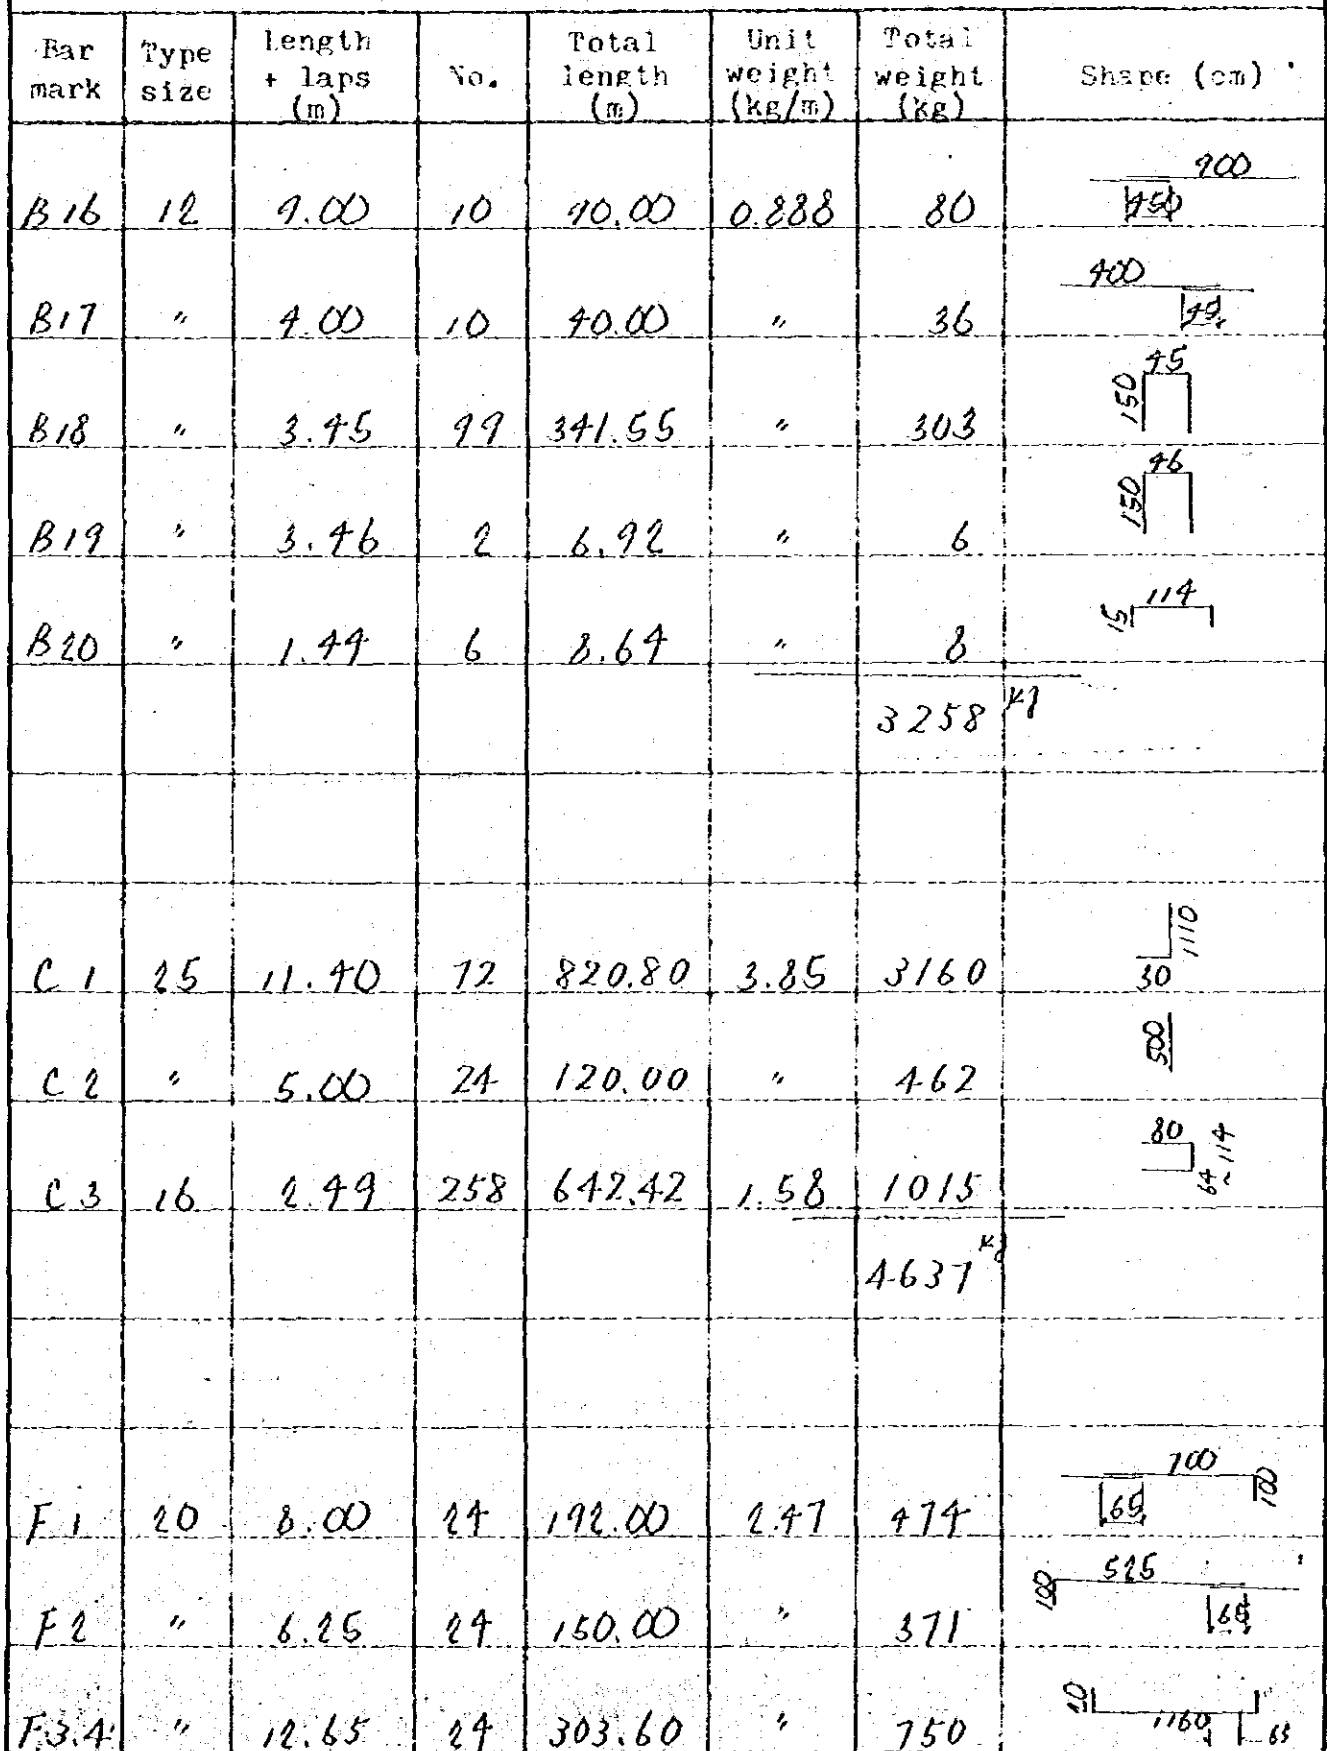 Bar mark Type size Length + laps (m) No. Total length (m) Unit weight (kg/m) Total weight (kg) Shape (cm)
900
B16 12 9.00 10 90.00 0.888 80
400
B17 " 4.00 10 40.00 " 36 45
45
B18 " 3.45 99 341.55 " 303 150
46
B19 " 3.46 2 6.92 " 6 150
114
B20 " 1.44 6 8.64 " 8 15
3258 kg
C1 25 11.40 72 820.80 3.85 3160 30 1110
C2 " 5.00 24 120.00 " 462 500
80
C3 16 2.49 258 642.42 1.58 1015 64~114
4637 kg
700
F1 20 8.00 24 192.00 2.47 474 65 100
525
F2 " 6.25 24 150.00 " 371 100 65
F.3.4 " 12.65 24 303.60 " 750 20 1160 65